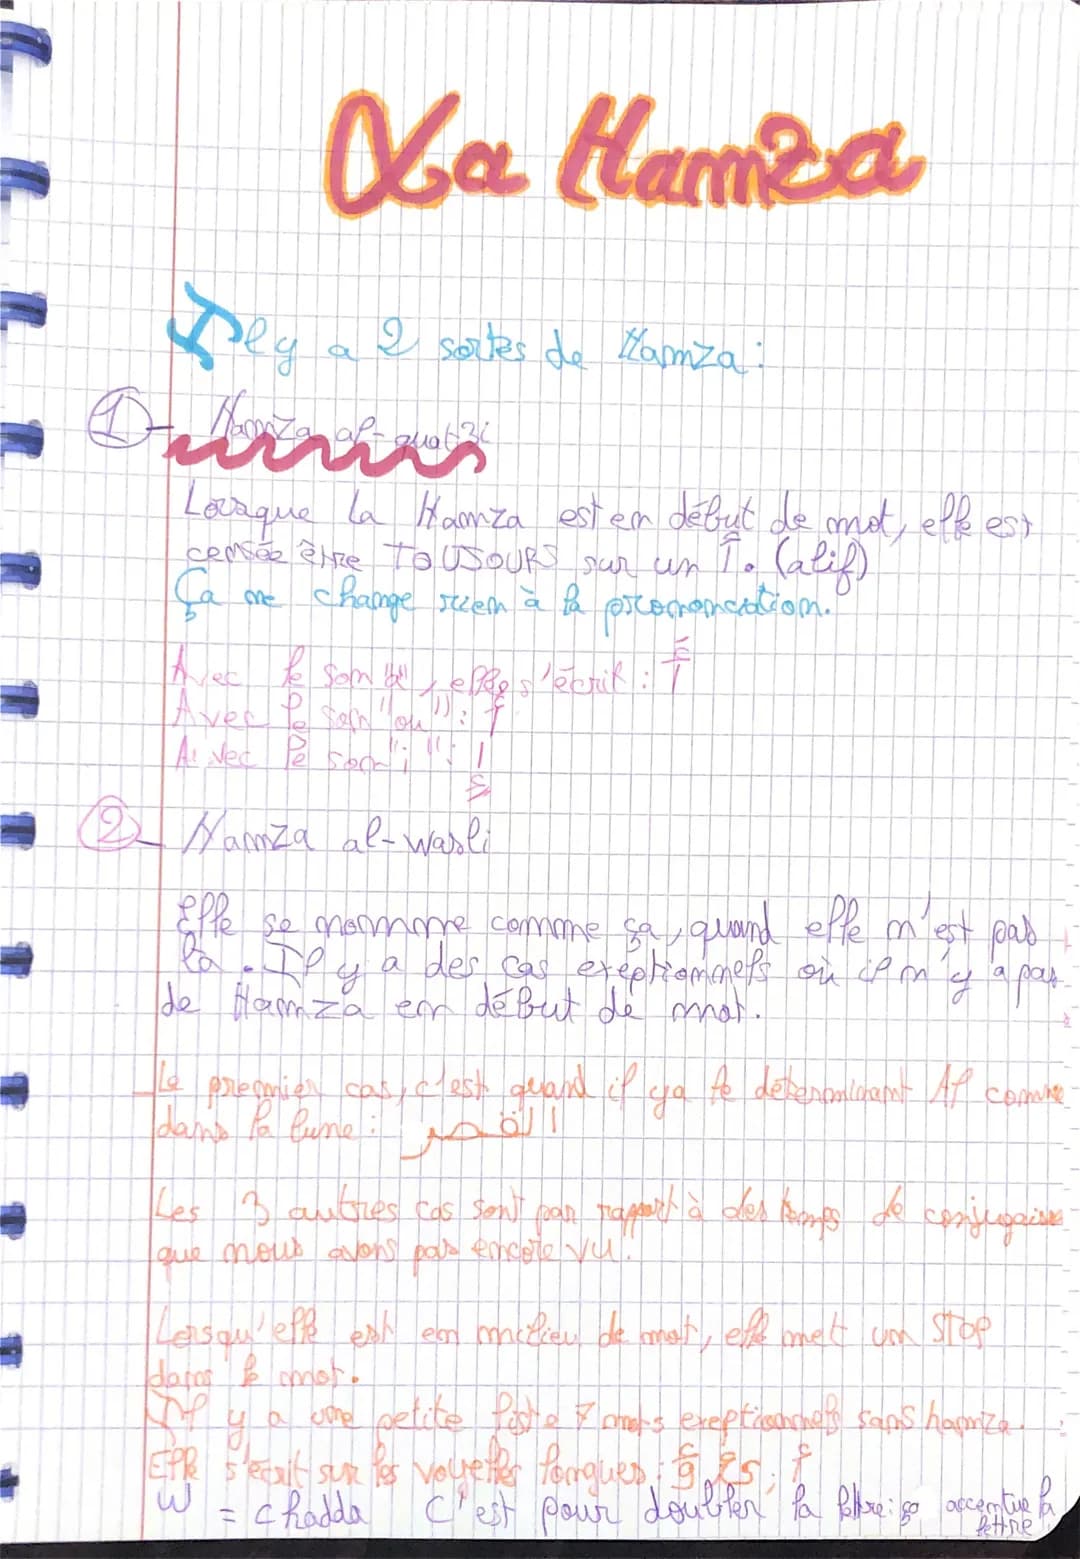 La Hamza
Il y a 2 sortes de Hamza :
1- Hamza al-quat3i
Lorsque la Hamza est en début de mot, elle est
censée être TOUJOURS sur un أ. (alif)
Ça ne change rien à la prononciation.
Avec le son , elle s'écrit : أ
Avec le son "ou" : أ
Avec le son "i" : إ
2- Hamza al-wasli
Elle se nomme comme ça, quand elle n'est pas
là. Il y a des cas exeptionnels où il n'y a pas
de Hamza en début de mot.
Le premier cas, c'est quand il ya le déterminant Al comme
dans la lune : القمر
Les 3 autres cas sont par rapport à des temps de conjugaison
que nous avons pas encore vu.
Lorsqu'elle est en milieu de mot, elle met un STOP
dans le mot.
Il y a une petite liste 7 mots exeptionnels sans hamza.
Elle s'écrit sur les voyelles longues : ؤ أ
w = chadda C'est pour doubler la lettre : accentue la
lettre